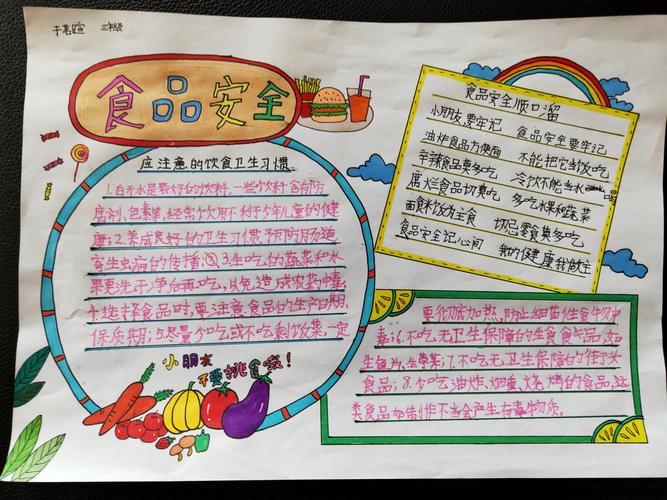 三年级
食品安全
应注意的饮食卫生习惯
1.白开水是最好的饮料,一些饮料含有防
腐剂、色素,经常饮用不利于少年儿童的健
康;2.养成良好的卫生习惯,预防肠道
寄生虫病的传播;3.生吃的蔬菜和水
果要洗干净后再吃,以免造成农药中毒;
4.选择食品时,要注意食品的生产日期、
保质期;5.尽量少吃或不吃剩饭菜,一定
小朋友
不要挑食哦!
食品安全顺口溜
小朋友要牢记 食品安全要牢记
油炸食品方便面 不能把它当饭吃
辛辣食品莫多吃 冷饮不能当水
腐烂食品切莫吃 多吃水果和蔬菜
面食米饭为主食 切忌零食莫多吃
食品安全记心间 我的健康我做主
要彻底加热,防止细菌性食物中
毒;6.不吃无卫生保障的生食食品,如
生鱼片、生荸荠;7.不吃无卫生保障的街头
食品;8.少吃油炸、烟熏、烧烤的食品,这
类食品如制作不当会产生有毒物质。